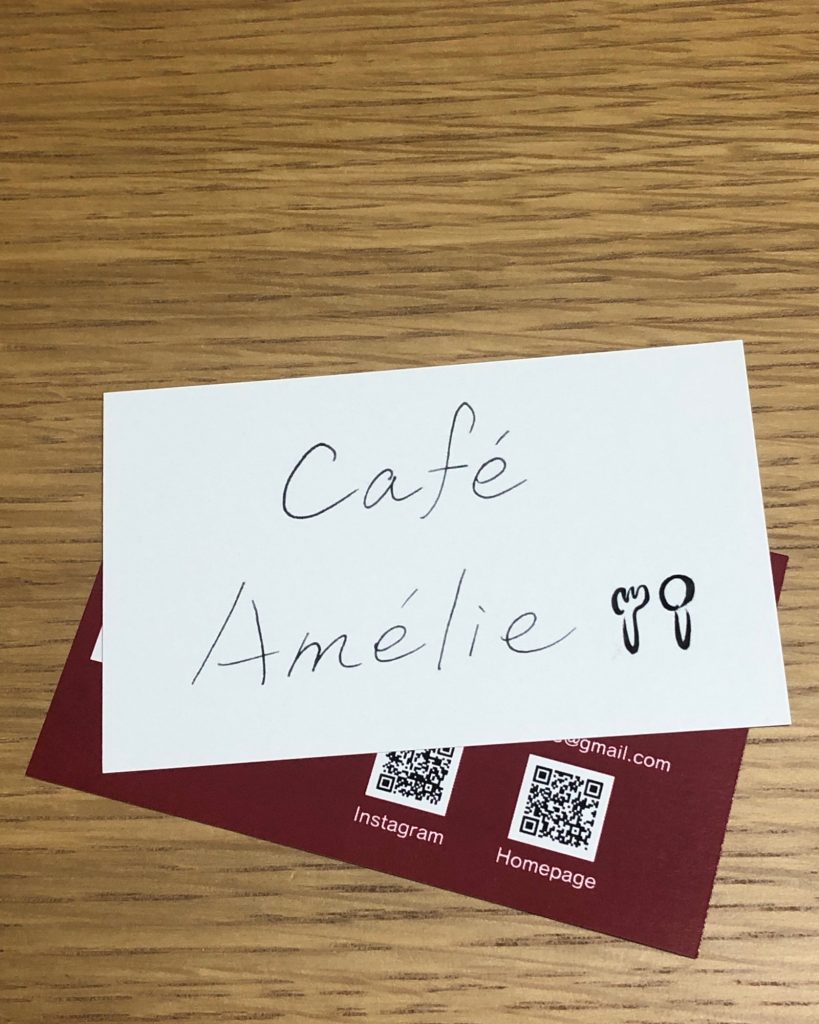 Café
Amélie
@gmail.com
Instagram
Homepage